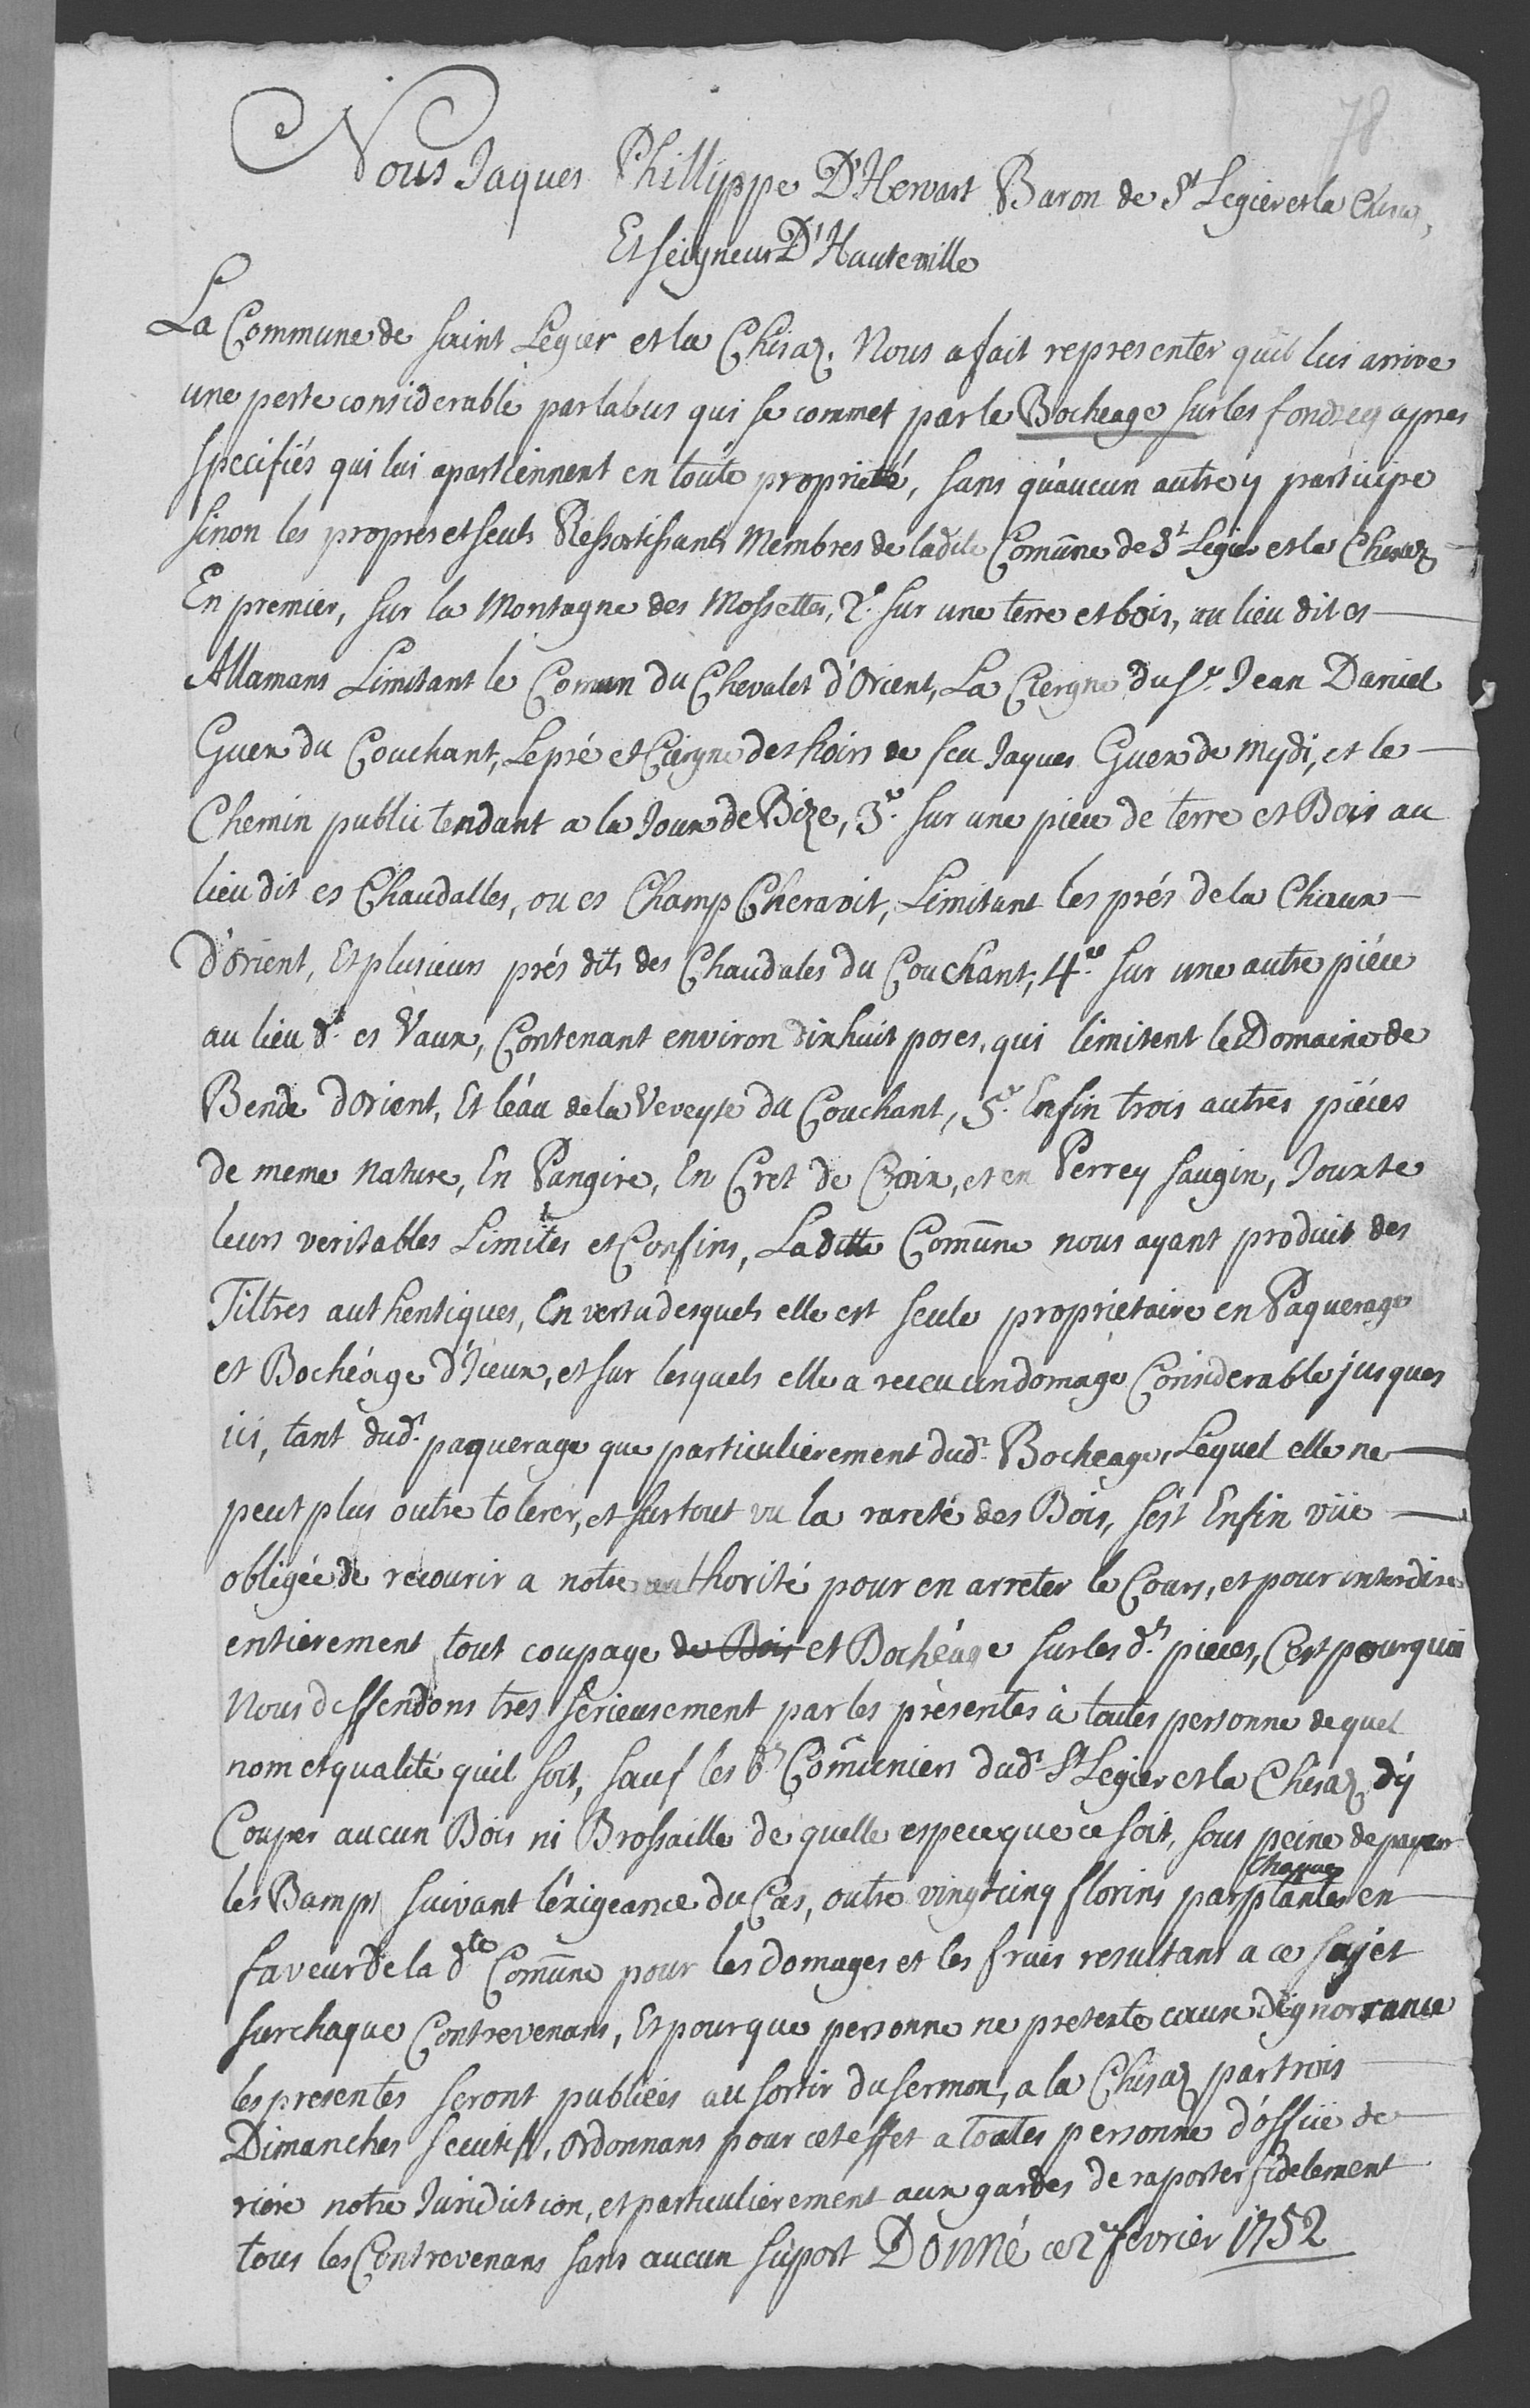 78
Nous Jaques Phillippe D'Hervart Baron de St Legier et la Chiesaz,
Et seigneur D'Hauteville
La Commune de saint Legier et la Chiesaz. Nous a fait representer quil lui arrive
une perte considerable par labus qui se commet par le Bocheage sur les fonds cy apres
specifiés qui lui apartiennent en toute proprieté, sans qu'aucun autre y participe
sinon les propres et seuls Ressortissants Membres de ladite Comune de St Legier et la Chiesaz
En premier, sur la Montagne des Mossettes, 2e. sur une terre et bois, au lieu dit es
Allamans Limitant le Comun du Chevalet d'Orient, La Ciergne du Sr. Jean Daniel
Guex du Couchant, Le pré et Ciergne des hoirs de feu Jaques Guex de Mydi, et le
Chemin public tendant a la Joux de Bize, 3e. sur une piece de terre et Bois au
lieu dit es Chaudalles, ou es Champ Cheravit, Limitant les prés de la Chaux
D'Orient, Et plusieurs prés dits des Chaudales du Couchant; 4e. sur une autre piéce
au lieu dt. es Vaux, Contenant environ dixhuit poses, qui limitent le Domaine de
Bende d'Orient, Et l'éau de la Veveyse du Couchant, 5e. Enfin trois autres piéces
de meme nature, En Pangire, En Cret de Croix, et en Perrey saugin, Jouxte
leurs veritables Limites et Confins, Laditte Comune nous ayant produit des
Tiltres authentiques, En vertu desquels elle est seule proprietaire en Paquerage
et Bochéage d'Iceux, et sur lesquels elle a receu un domage Considerable jusques
ici, tant dudt. paquerage que particulierement dudt. Bocheage, Lequel elle ne
peut plus outre tolerer, et surtout vu la rareté des Bois, s'est Enfin vüe
obligée de recourir a notre authorité pour en arreter le Cours, et pour interdire
entierement tout coupage de Bois et Bochéage sur les dts. pieces, C'est pourquoi
Nous deffendons tres serieusement par les présentes à toutes personne de quel
nom et qualité quil soit, sauf les dts Comuniers dudt St Legier et la Chiesaz, d'y
Couper aucun Bois ni Brossaille de quelle espece que ce soit, sous peine de payer
les Bamps suivant l'éxigeance du Cas, outre vingtcinq florins par chaque plantes en
faveur de la dte Comune pour les domages et les frais resultans a ce sujet
sur chaque Contrevenans, Et pour que personne ne pretexte cause d'ignorrance
les presentes seront publiées au sortir du sermon, a la Chiesaz par trois
Dimanches secutifs, Ordonnans pour cet effet a toutes personne d'office de
riere notre Juridiction, et particulierement aux gardes de raporter fidelement
tous les Contrevenans sans aucun suport Donné ce 2e fevrier 1752